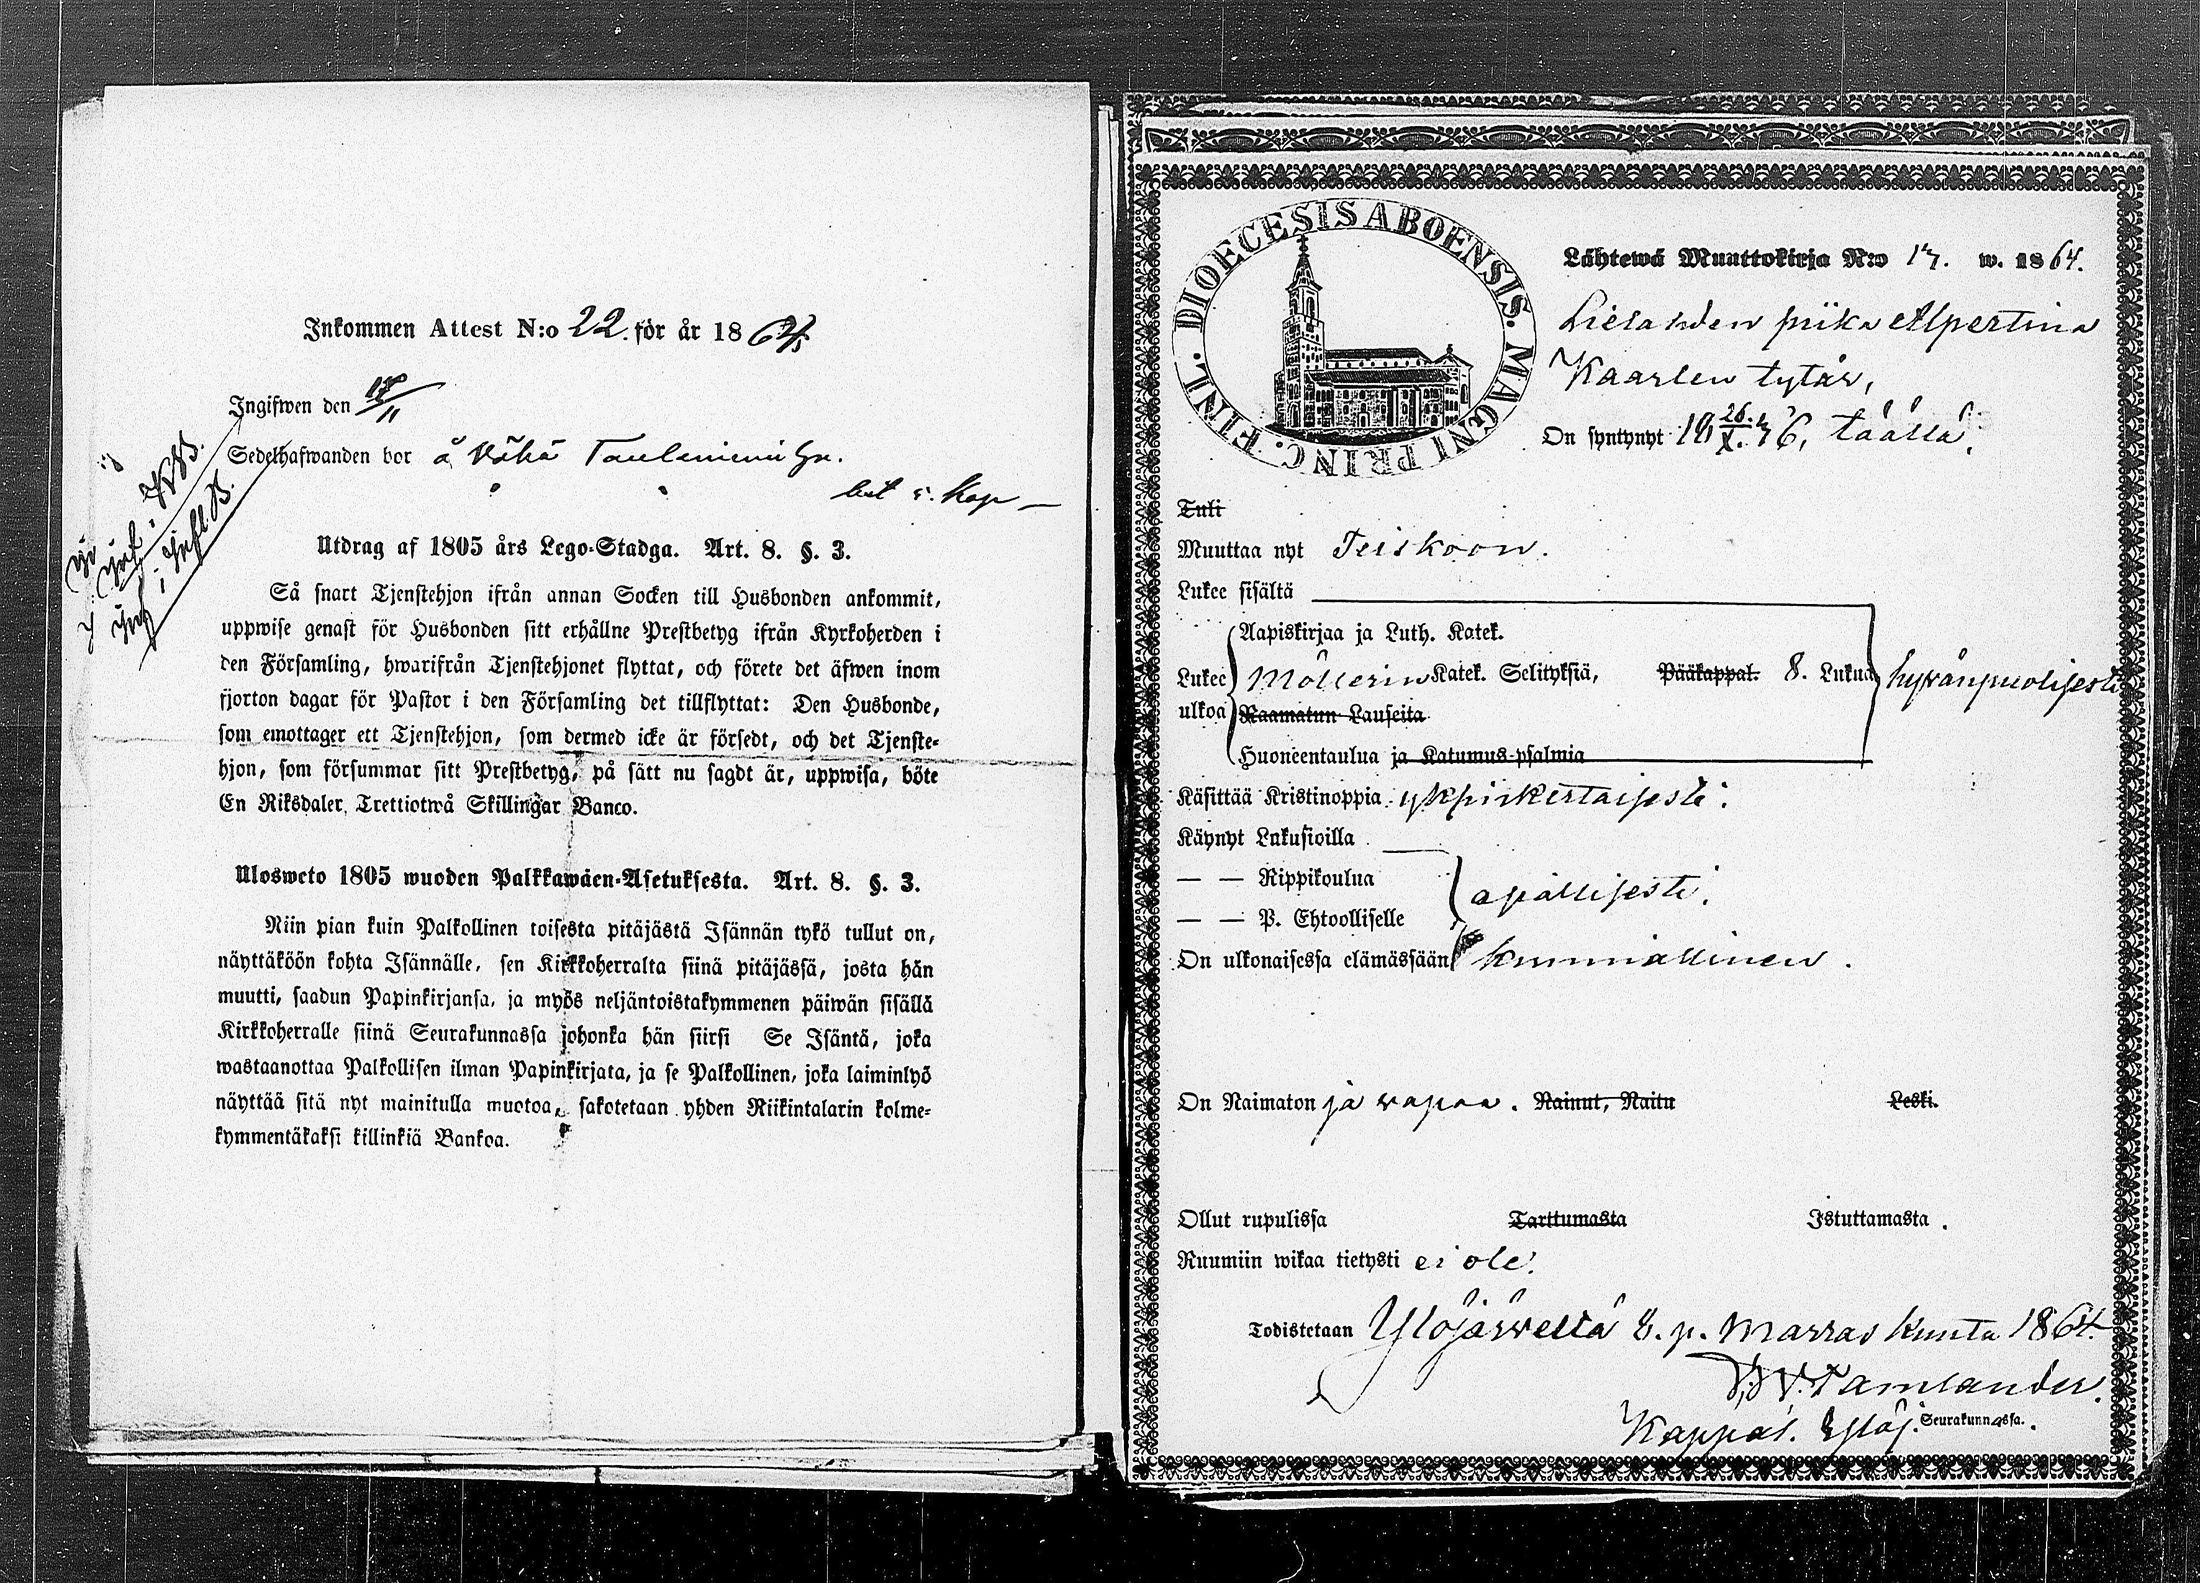 Inkommen Attest N:o 22. för år 1864/5
Ingifwen den 18/11
Sedelhafwanden bor å Vähä
Utdrag af 1805 års Lego-Stadga. Art. 8. §. 3.
Så snart Tjenstehjon ifrån annan Socken till Husbonden ankommit,
uppwise genast för Husbonden sitt erhållne Prestbetyg ifrån Kyrkoherden i
den Församling, hwarifrån Tjenstehjonet flyttat, och förete det äfwen inom
fjorton dagar för Pastor i den Församling det tillflyttat: Den Husbonde,
som emottager ett Tjenstehjon, som dermed icke är försedt, och det Tjenste-
hjon, som försummar sitt Prestbetyg, på sätt nu sagdt är, uppwisa, böte
En Riksdaler Trettiotwå Skillingar Banco.
Ulosweto 1805 wuoden Palkkawäen-Asetuksesta. Art. 8. §. 3.
Niin pian kuin Palkollinen toisesta pitäjästä Isännän tykö tullut on,
näyttäköön kohta Isännälle, sen Kirkkoherralta siinä pitäjässä, josta hän
muutti, saadun Papinkirjansa, ja myös neljäntoistakymmenen päiwän sisällä
Kirkkoherralle siinä Seurakunnassa johonka hän siirsi Se Isäntä, joka
wastaanottaa Palkollisen ilman Papinkirjata, ja se Palkollinen, joka laiminlyö
näyttää sitä nyt mainitulla muotoa, sakotetaan yhden Riikintalarin kolme-
kymmentäkaksi killinkiä Bankoa.
DIOECESIS ABOENSIS. MAGNI PRINC. FINL.
Lähtewä Muuttokirja N:o 17. w. 1864.
Lielahden piika Alpertina
Kaarlen tytär,
On syntynyt 18 26/X. 46, täällä.
Tuli
Muuttaa nyt Teiskoon.
Lukee sisältä
Aapiskirjaa ja Luth. Katek.
Lukee Möllerin Katek. Selityksiä, Pääkappal. 8. Lukua hyvänpuolisesti
ulkoa Raamatun Lauseita
Huoneentaulua ja Katumus-psalmia
Käsittää Kristinoppia ykpirkertaisesti.
Käynyt Lukusioilla
— — Rippikoulua
— — P. Ehtoolliselle apällisesti.
On ulkonaisessa elämässään kunniallinen.
On Naimaton ja vapaa. Nainut, Naitu Leski.
Ollut rupulissa Tarttumasta Istuttamasta.
Ruumiin wikaa tietysti ei ole.
Todistetaan Ylöjärvellä 8. p. Marraskuuta 1864.
Tamlander.
Kappal. Ylöj. Seurakunnassa.